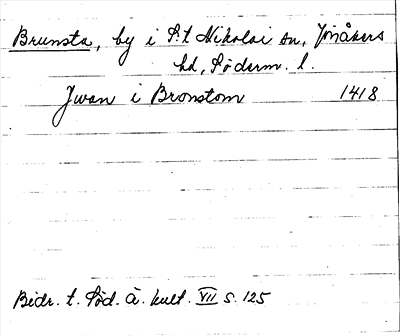 Brunsta, by i S:t Nikolai sn, Jönåkers
hd, Söderm. l.
Jwan i Bronstom 1418
Bidr. t. Söd. ä. kult. VII s. 125